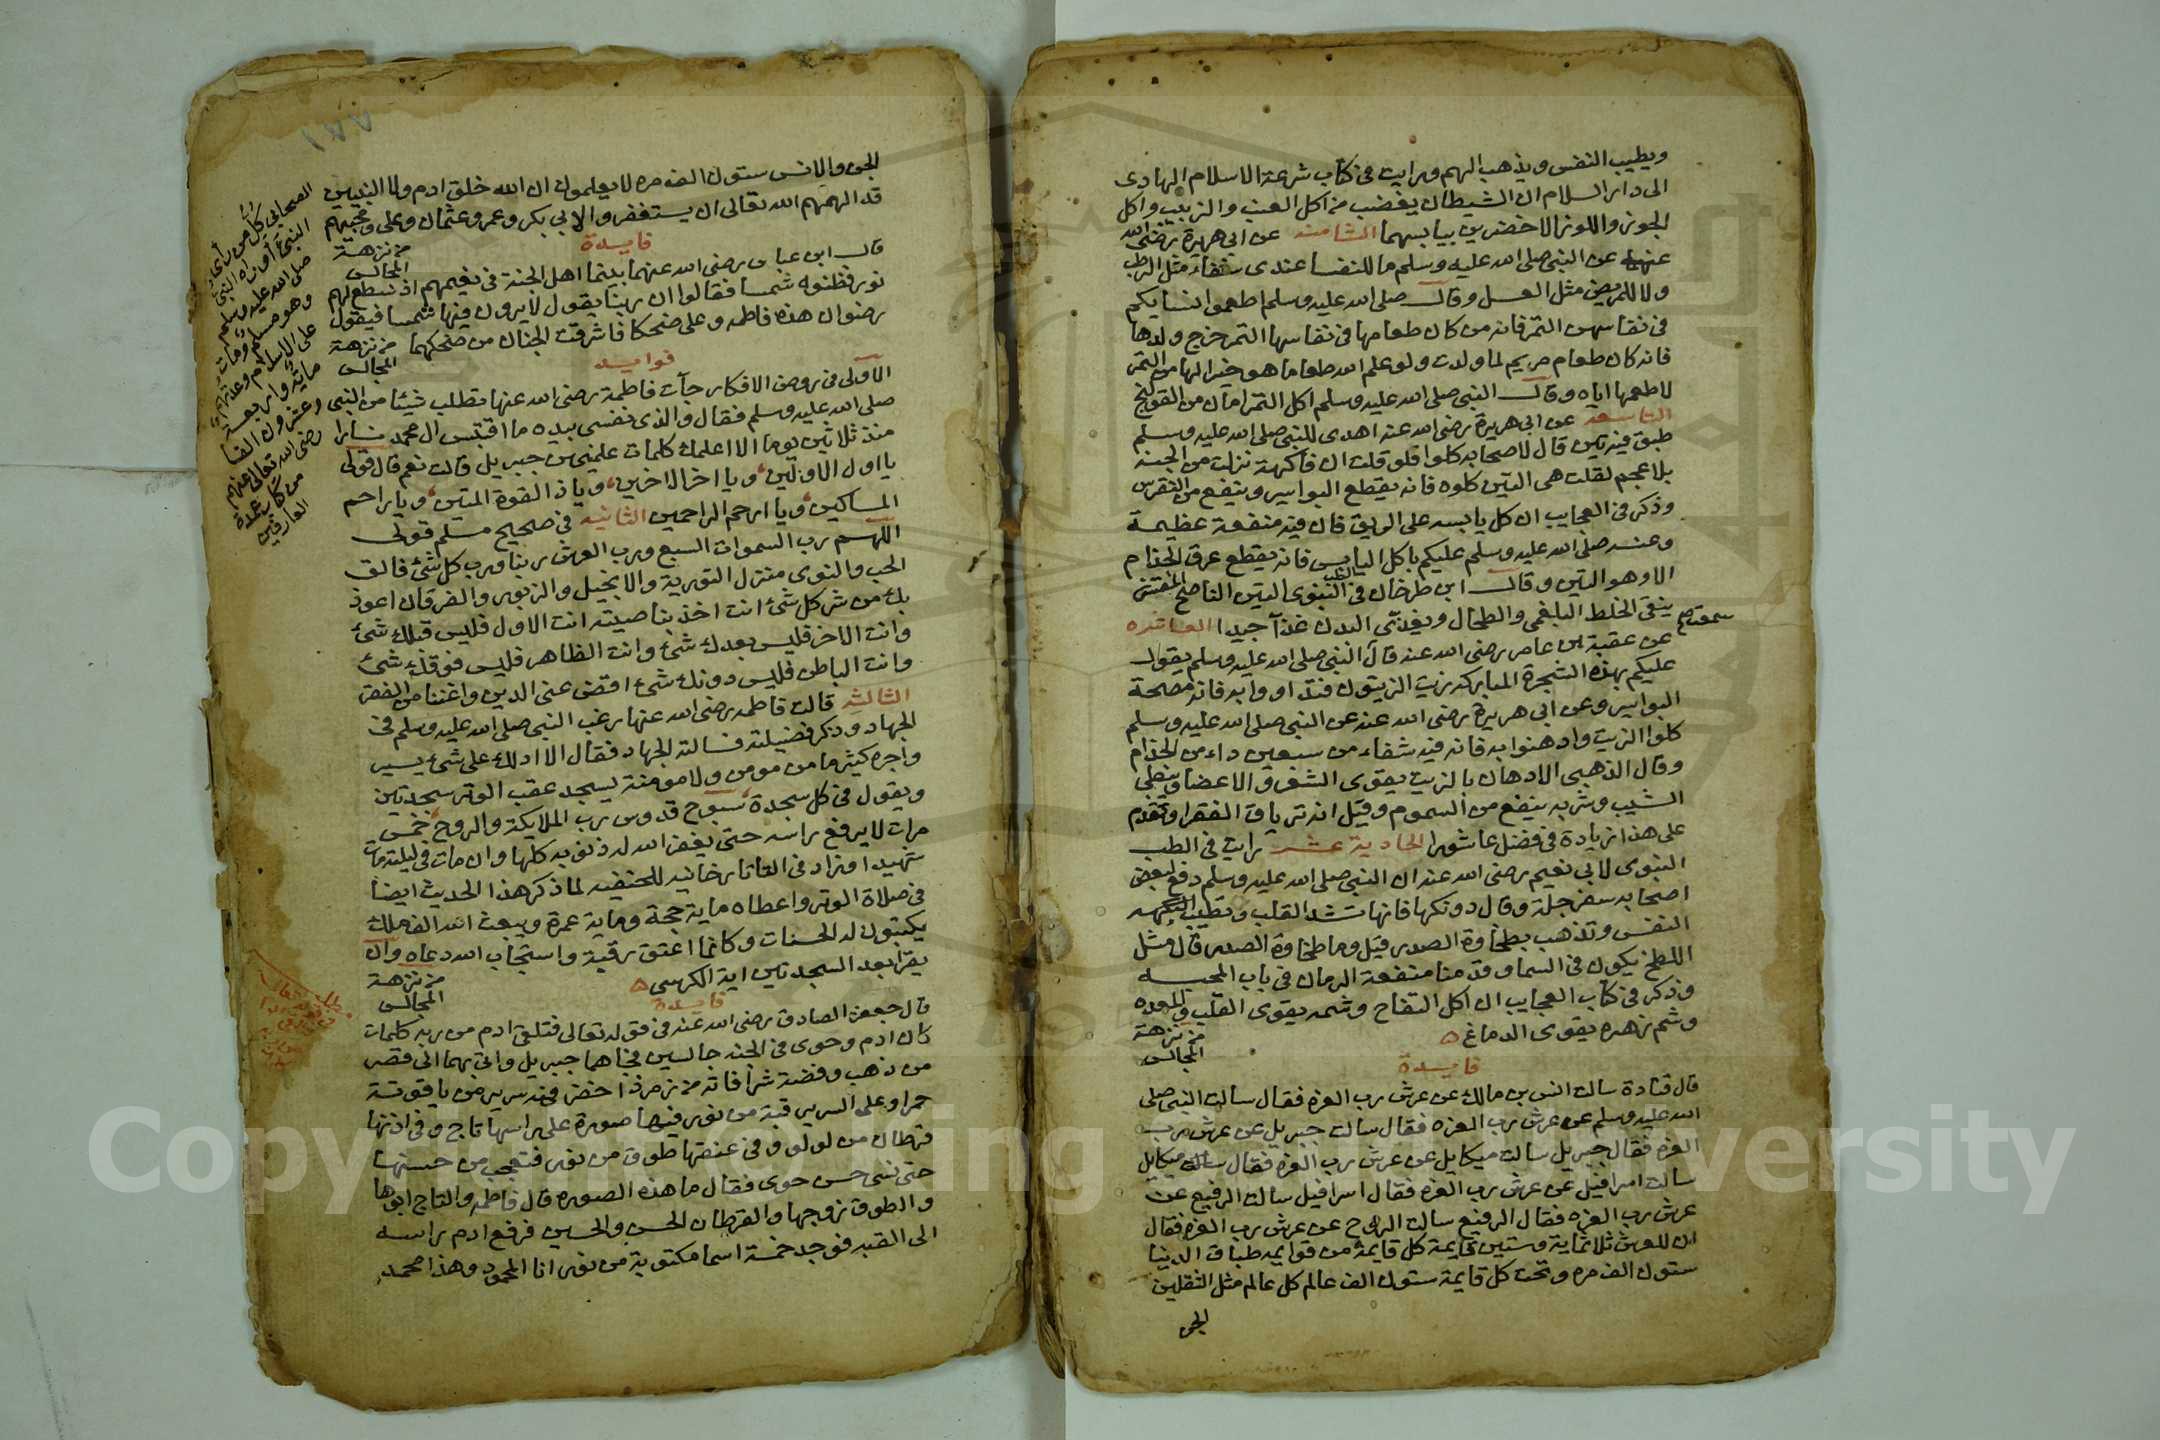 ويطيب النفس ويذهب الهم ورايت في كتاب شرعة الاسلام الهادى
الى دار السلام ان الشيطان يغضب من اكل العنب والزبيب واكل
الجوز واللوز الاخضرين بيابسهما الثامنه عن ابى هريرة رضى الله
عنهما عن النبى صلى الله عليه وسلم ما للنفسا عندى شفاء مثل الرطب
ولا للمريض مثل العسل وقال صلى الله عليه وسلم اطعموا نسايكم
فى نفاسهن التمر فانه من كان طعامها فى نفاسها التمر خرج ولدها
فانه كان طعام مريم لما ولدت ولو علم الله طعاما هو خير لها من التمر
لاطعمها اياه وقال النبى صلى الله عليه وسلم اكل التمر امان من القولنج
التاسعه عن ابى هريرة رضى الله عنه اهدى للنبى صلى الله عليه وسلم
طبق فيه تين قال لاصحابه كلوا فلو قلت ان فاكهة نزلت من الجنه
بلا عجم لقلت هى التين كلوه فانه يقطع البواسير وينفع من النقرس
وذكر فى العجايب ان اكل يابسه على الريق فان فيه منفعة عظيمة
وعنه صلى الله عليه وسلم عليكم باكل اليابس فانه يقطع عرق الجذام
الا وهو التين وقال ابن طرخان فى الطب النبوى التين الناضج المقشر
ينقى الخلط البلغمى والطحال ويغذى البدن غذآ جيدا العاشره
عن عقبة بن عامر رضى الله عنه قال النبى صلى الله عليه وسلم يقول
عليكم بهذه الشجرة المباركه زيت الزيتون فتداووا به فانه مصحة
البواسير وعن ابى هريرة رضى الله عنه عن النبى صلى الله عليه وسلم
كلوا الزيت وادهنوا به فانه فيه شفاء من سبعين داء من الجذام
وقال الذهبى الادهان بالزيت يقوى الشعر والاعضا ويبطى
الشيب وشربه ينفع من السموم وقيل انه ترياق الفقرا وتقدم
على هذا زيادة فى فضل عاشورا الحادية عشر رايت فى الطب
النبوى لابى نعيم رضى الله عنه ان النبى صلى الله عليه وسلم دفع لبعض
اصحابه سفرجلة وقال دونكها فانها تشد القلب وتطيب
النفس وتذهب بطخاوة الصدر قيل وما طخاوة الصدر قال مثل
اللطخ يكون فى السما وقدمنا منفعة الرمان فى باب المحبه
وذكر فى كتاب العجايب ان اكل التفاح وشمه يقوى القلب والمعده
وشم زهره يقوى الدماغ ه من نزهة المجالس
فايدة
قال قتادة سالت انس بن مالك عن عرش رب العزه فقال سالت النبى صلى
الله عليه وسلم عن عرش رب العزه فقال سالت جبريل عن عرش رب
العزه فقال جبريل سالت ميكايل عن عرش رب العزه فقال ميكايل
سالت اسرافيل عن عرش رب العزه فقال اسرافيل سالت الرفيع عن
عرش رب العزه فقال الرفيع سالت الروح عن عرش رب العزه فقال
ان للعرش ثلاثماية وستين قايمة كل قايمة من قوايمه طباق الدنيا
ستون الف مره وتحت كل قايمة ستون الف عالم كل عالم مثل الثقلين
الجن
الجن والانس ستون الف مره لا يعلمون ان الله خلق ادم ولا النبيين
قد الهمهم الله تعالى ان يستغفروا لابى بكر وعمر وعثمان وعلى ومحبهم
فايدة من نزهة المجالس
قال ابن عباس رضى الله عنهما بينما اهل الجنة فى نعيمهم اذ سطع لهم
نور فظنوه شمسا فقالوا ان ربنا يقول لا يرون فيها شمسا فيقول
رضوان هذه فاطمه وعلى ضحكا فاشرقت الجنان من ضحكهما من نزهة المجالس
فوايد
الاولى فى روض الافكار جآت فاطمة رضى الله عنها تطلب شيئا من النبى
صلى الله عليه وسلم فقال والذى نفسى بيده ما اقتبس ال محمد نارا
منذ ثلاثين يوما الا اعلمك كلمات علمنيهن جبريل قالت نعم قال قولى
يا اول الاولين ويا اخر الاخرين ويا ذا القوة المتين ويا راحم
المساكين ويا ارحم الراحمين الثانيه فى صحيح مسلم قولى
اللهم رب السموات السبع ورب العرش ربنا ورب كل شئ فالق
الحب والنوى منزل التورية والانجيل والزبور والفرقان اعوذ
بك من شر كل شئ انت اخذ بناصيته انت الاول فليس قبلك شئ
وانت الاخر فليس بعدك شئ وانت الظاهر فليس فوقك شئ
وانت الباطن فليس دونك شئ اقض عنى الدين واغننا من الفقر
الثالثه قالت فاطمه رضى الله عنها رغب النبى صلى الله عليه وسلم فى
الجهاد وذكر فضيلته فسالته الجهاد فقال الا ادلك على شئ يسير
واجره كثير ما من مومن ولا مومنة يسجد عقب الوتر سجدتين
ويقول فى كل سجدة سبوح قدوس رب الملايكة والروح خمس
مرات لا يرفع راسه حتى يغفر الله له ذنوبه كلها وان مات فى ليلته مات
شهيدا وزاد فى التاتارخانيه للحنفيه لما ذكر هذا الحديث ايضا
فى صلاة الوتر واعطاه ماية حجة وماية عمرة ويبعث الله الف ملك
يكتبون له الحسنات وكانما اعتق رقبة واستجاب الله دعاه وان
يقرا بعد السجدتين اية الكرسى ه من نزهة المجالس
فايدة
قال جعفر الصادق رضى الله عنه فى قوله تعالى فتلقى ادم من ربه كلمات
كان ادم وحوى فى الجنه جالسين فجاهما جبريل واتى بهما الى قصر
من ذهب وفضة شرافاته من زمرذ اخضر فيه سرير من ياقوتة
حمرا وعلى السرير قبة من نور فيها صورة على راسها تاج وفى اذنها
قرطان من لولو وفى عنقها طوق من نور فتعجب من حسنها
حتى نسى حسن حوى فقال ما هذه الصوره قال فاطمه والتاج ابوها
والطوق زوجها والقرطان الحسن والحسين فرفع ادم راسه
الى القبه فوجد خمسة اسما مكتوبة من نور انا المحمود وهذا محمد
الصحابى كل من رأى
النبى أو رآه النبى
صلى الله عليه وسلم
وهو مسلم ومات
على الاسلام وعدتهم
ماية واربعة
وعشرون الفا
رضى الله تعالى عنهم
من عمدة
العارفين
Copyright © King Saud University